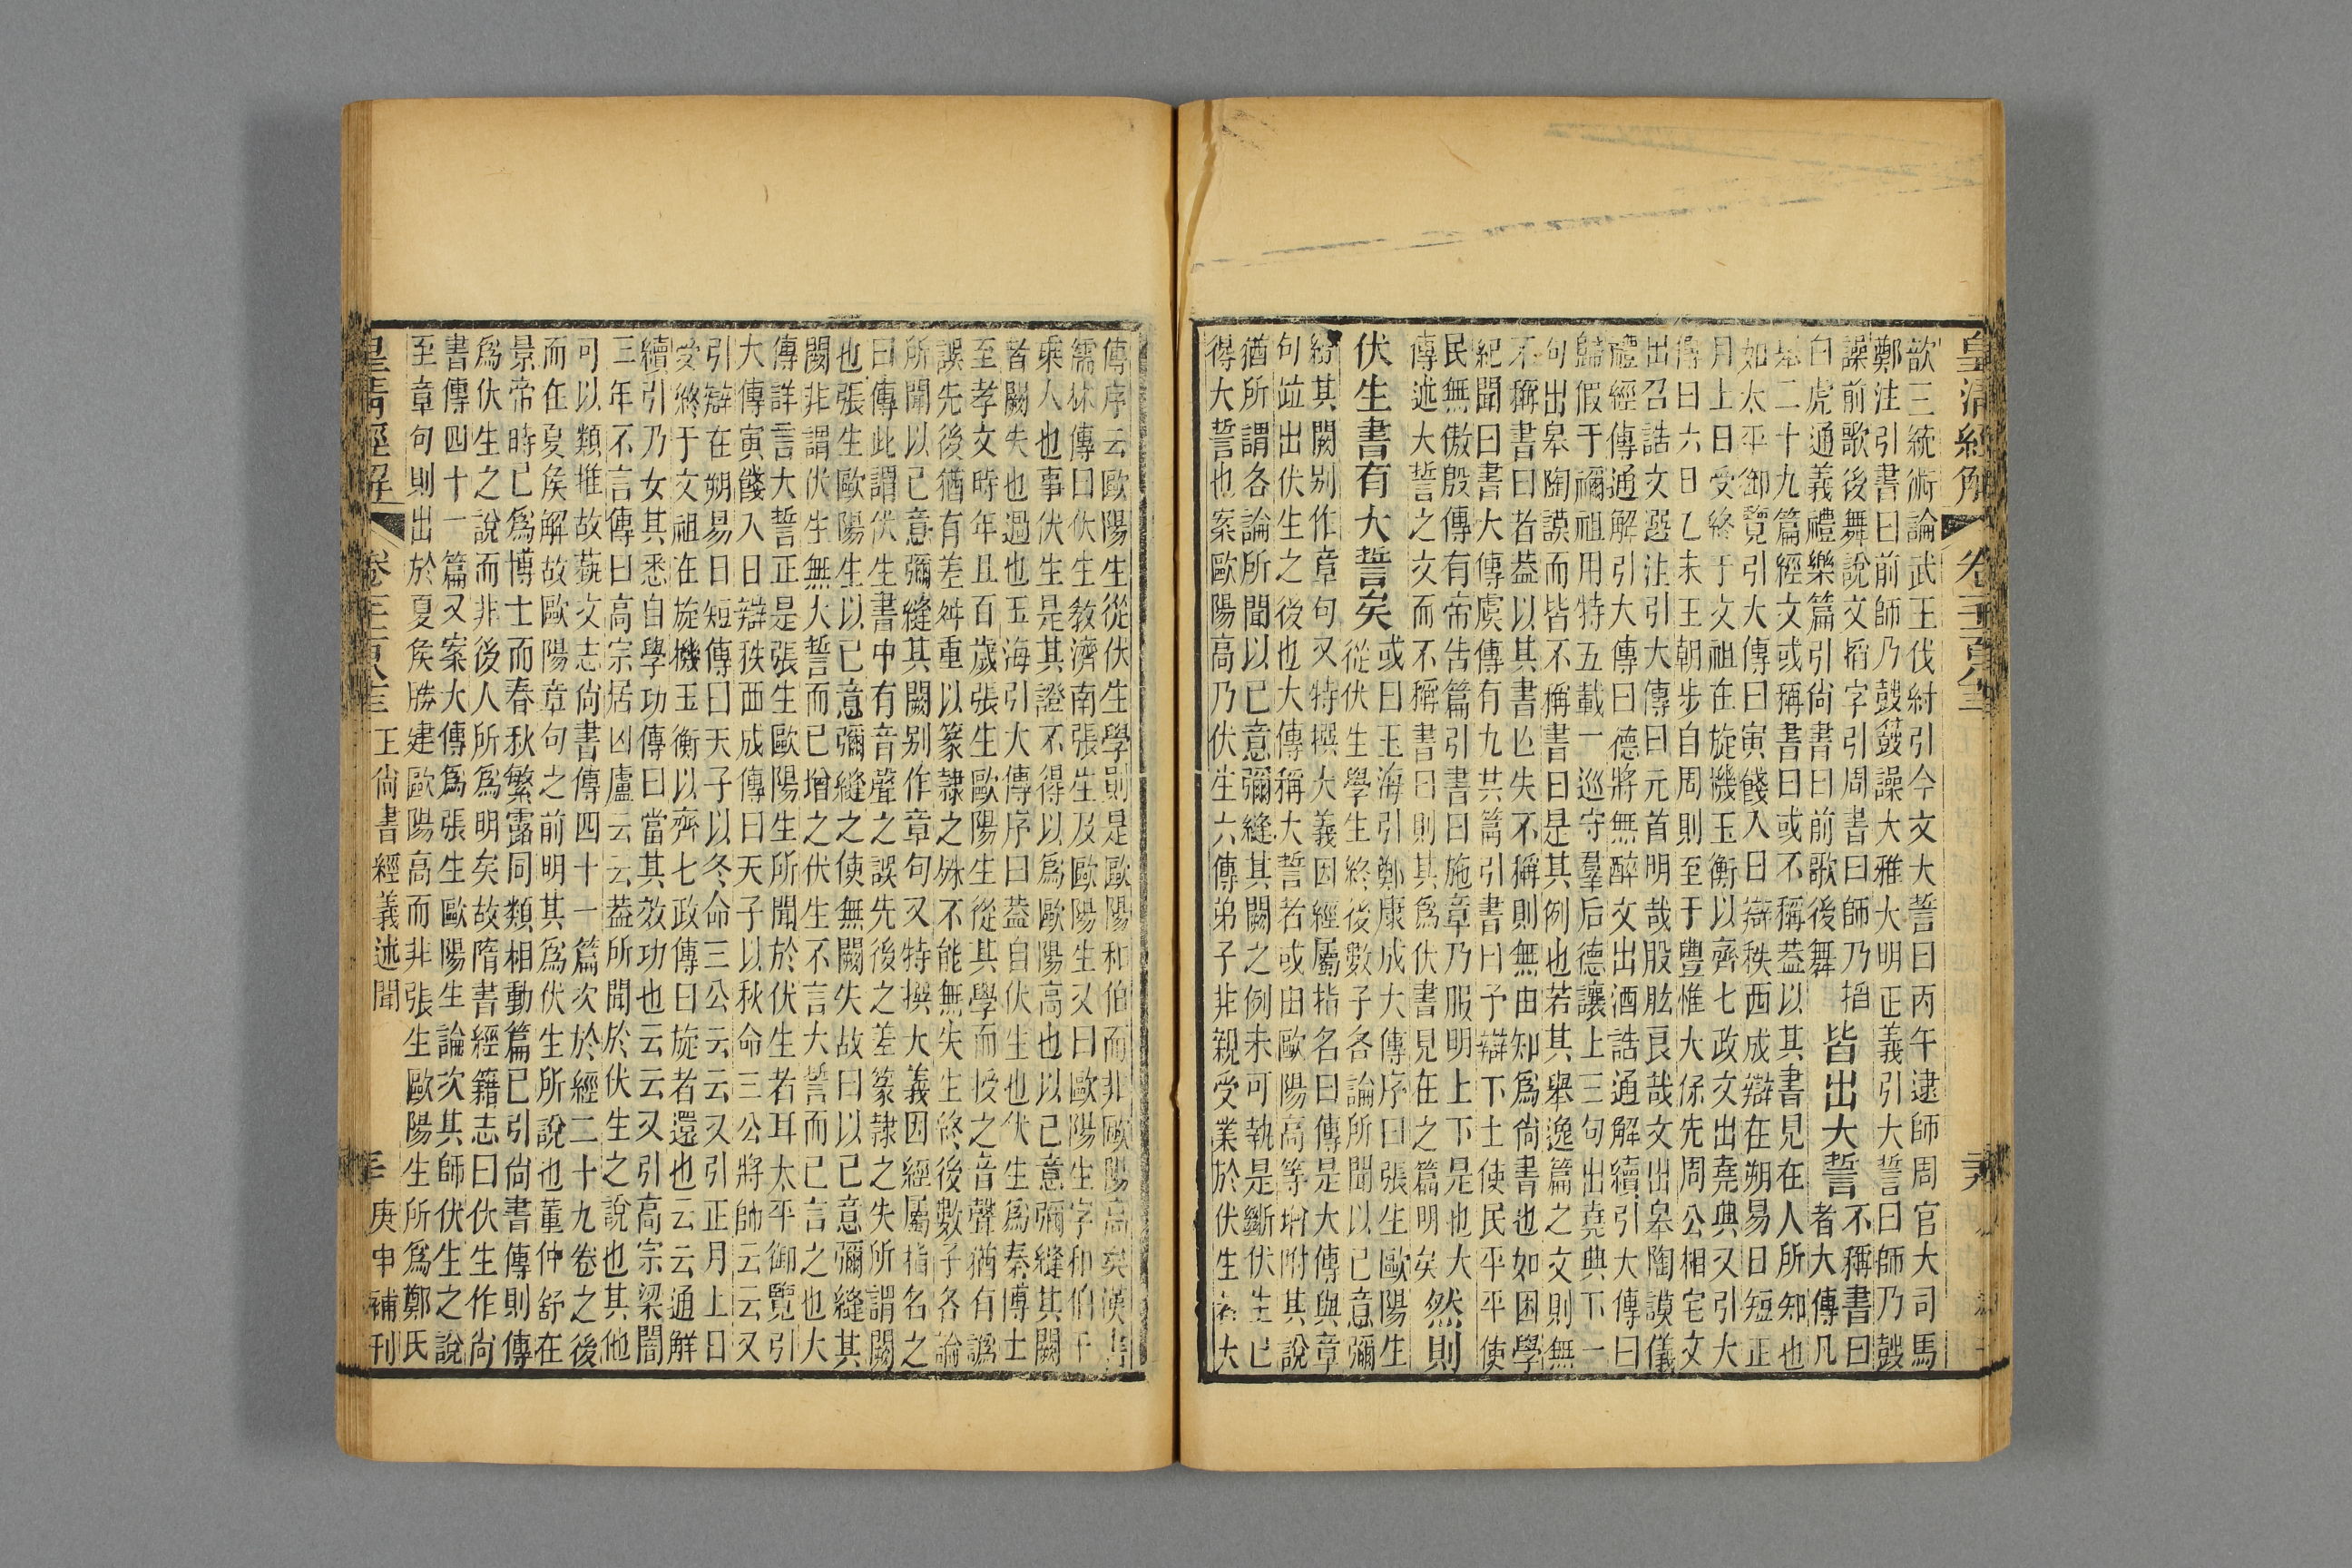 皇清經解
歆三統術論武王伐紂引今文大誓曰丙午逮師周官大司馬
鄭注引書曰前師乃鼓䥬譟大雅大明正義引大誓曰師乃鼓
譟前歌後舞說文搯字引周書曰師乃搯
白虎通義禮樂篇引尚書曰前歌後舞
皆出大誓
不稱書曰
者大傳凡
二十九篇經文或稱書曰或不稱蓋以其書見在人所知也
如太平御覽引大傳曰寅餞入日辯秩西成辯在朔易日短正
月上日受終于文祖在旋機玉衡以齊七政文出堯典又引大
傳曰六日乙未王朝步自周則至于豐惟大保先周公相宅文
出召誥文選注引大傳曰元首明哉股肱良哉文出皋陶謨儀
禮經傳通解引大傳曰德將無醉文出酒誥通解續引大傳曰
歸假于禰祖用特五載一巡守羣后德讓上三句出堯典下一
句出皋陶謨而皆不稱書曰是其例也若其舉逸篇之文則無
不稱書曰者蓋以其書亾失不稱則無由知爲尚書也如困學
紀聞曰書大傳虞傳有九共篇引書曰予辯下士使民平平使
民無傲殷傳有帝告篇引書曰施章乃服明上下是也大
傳述大誓之文而不稱書曰則其爲伏書見在之篇明矣
然則
伏生書有大誓矣
或曰玉海引鄭康成大傳序曰張生歐陽生
從伏生學生終後數子各論所聞以已意彌
縫其闕别作章句又特撰大義因經屬指名曰傳是大傳與章
句竝出伏生之後也大傳稱大誓者或由歐陽高等增附其說
猶所謂各論所聞以已意彌縫其闕之例未可執是斷伏生已
得大誓也案歐陽高乃伏生六傳弟子非親受業於伏生案大
傳序云歐陽生從伏生學則是歐陽和伯而非歐陽高矣漢書
儒林傳曰伏生敎濟南張生及歐陽生又曰歐陽生字和伯千
乘人也事伏生是其證不得以爲歐陽高也以已意彌縫其闕
者闕失也過也玉海引大傳序曰蓋自伏生也伏生爲秦博士
至孝文時年且百歲張生歐陽生從其學而授之音聲猶有譌
誤先後猶有差舛重以篆隷之殊不能無失生終後數子各論
所聞以已意彌縫其闕别作章句又特撰大義因經屬指名之
曰傳此謂伏生書中有音聲之誤先後之差篆隷之失所謂闕
也張生歐陽生以已意彌縫之使無闕失故曰以已意彌縫其
闕非謂伏生無大誓而已增之伏生不言大誓而已言之也大
傳詳言大誓正是張生歐陽生所聞於伏生者耳太平御覽引
大傳寅餞入日辯秩西成傳曰天子以秋命三公將帥云云又
引辯在朔易日短傳曰天子以冬命三公云云又引正月上日
受終于文祖在旋機玉衡以齊七政傳曰旋者還也云云通解
續引乃女其悉自學功傳曰當其效功也云云又引高宗梁闇
三年不言傳曰高宗居凶廬云云蓋所聞於伏生之說也其他
可以類推故蓺文志尚書傳四十一篇次於經二十九卷之後
而在夏矦解故歐陽章句之前明其爲伏生所說也董仲舒在
景帝時已爲博士而春秋繁露同類相動篇已引尚書傳則傳
爲伏生之說而非後人所爲明矣故隋書經籍志曰伏生作尚
書傳四十一篇又案大傳爲張生歐陽生論次其師伏生之說
至章句則出於夏矦勝建歐陽高而非張生歐陽生所爲鄭氏
皇清經解
尚書
經義述聞
庚申補刊